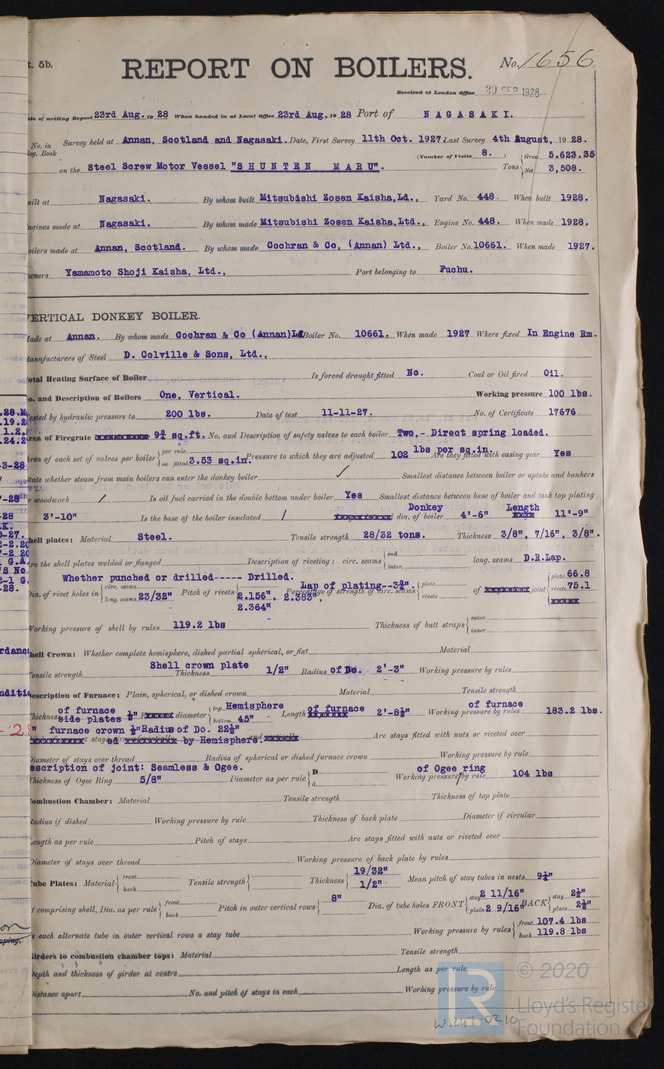 t. 5b.
REPORT ON BOILERS.
No. 1656
Received at London Office 20 SEP 1928
te of writing Report 23rd Aug. 19 28 When handed in at Local Office 23rd Aug. 19 28 Port of NAGASAKI.
No. in Survey held at Annan, Scotland and Nagasaki. Date, First Survey 11th Oct. 1927. Last Survey 4th August, 1928.
eg. Book
(Number of Visits 8. ) Gross 5.623.35
on the Steel Screw Motor Vessel "SHUNTEN MARU". Tons Net 3,508.
uilt at Nagasaki. By whom built Mitsubishi Zosen Kaisha,Ld., Yard No. 448. When built 1928.
ngines made at Nagasaki. By whom made Mitsubishi Zosen Kaisha,Ltd., Engine No. 448. When made 1928.
oilers made at Annan, Scotland. By whom made Cochran & Co, (Annan) Ltd., Boiler No. 10661. When made 1927.
wners Yamamoto Shoji Kaisha, Ltd., Port belonging to Fuchu.
VERTICAL DONKEY BOILER.
Made at Annan. By whom made Cochran & Co (Annan)Ld Boiler No. 10661. When made 1927 Where fixed In Engine Rm.
Manufacturers of Steel D. Colville & Sons, Ltd.,
Total Heating Surface of Boiler Is forced draught fitted No. Coal or Oil fired Oil.
No. and Description of Boilers One, Vertical. Working pressure 100 lbs.
Tested by hydraulic pressure to 200 lbs. Date of test 11-11-27. No. of Certificate 17676
Area of Firegrate xxxxxxxxx 9¾ sq.ft. No. and Description of safety valves to each boiler Two,- Direct spring loaded.
Area of each set of valves per boiler per rule as fitted 3.53 sq.in. Pressure to which they are adjusted 102 lbs per sq.in. Are they fitted with easing gear Yes
State whether steam from main boilers can enter the donkey boiler / Smallest distance between boiler or uptake and bunkers
r woodwork / Is oil fuel carried in the double bottom under boiler Yes Smallest distance between base of boiler and tank top plating
3'-10" Is the base of the boiler insulated / Donkey dia. of boiler 4'-6" Length 11'-9"
Shell plates: Material Steel. Tensile strength 28/32 tons. Thickness 3/8", 7/16", 3/8".
Are the shell plates welded or flanged Description of riveting: circ. seams end inter. long. seams D.R.Lap.
Whether punched or drilled----- Drilled. Lap of plating--3¾". plate 66.8
Dia. of rivet holes in circ. seams long. seams 23/32" Pitch of rivets 2.156". 2.383". Percentage of strength of circ. seams plate rivets of joint rivets 75.1
2.364"
Working pressure of shell by rules 119.2 lbs Thickness of butt straps outer inner
Shell Crown: Whether complete hemisphere, dished partial spherical, or flat Material
Tensile strength Shell crown plate Thickness 1/2" Radius of Do. 2'-3" Working pressure by rules
Description of Furnace: Plain, spherical, or dished crown Material Tensile strength
Thickness of furnace side plates ½" diameter top. Hemisphere bottom 45" Length of furnace 2'-8½" Working pressure of furnace by rules 183.2 lbs.
" furnace crown ½" Radius of Do. 22½"
ed by Hemisphere. Are stays fitted with nuts or riveted over
Diameter of stays over thread Radius of spherical or dished furnace crown Working pressure by rule
escription of joint: Seamless & Ogee. of Ogee ring
Thickness of Ogee Ring 5/8" Diameter as per rule D d Working pressure by rule 104 lbs
Combustion Chamber: Material Tensile strength Thickness of top plate
Radius if dished Working pressure by rule Thickness of back plate Diameter if circular
Length as per rule Pitch of stays Are stays fitted with nuts or riveted over
Diameter of stays over thread Working pressure of back plate by rules
Tube Plates: Material front back Tensile strength Thickness 19/32" 1/2" Mean pitch of stay tubes in nests 9¼"
f comprising shell, Dia. as per rule front back Pitch in outer vertical rows 8" Dia. of tube holes FRONT stay 2 11/16" plain 2 9/16" BACK stay 2½" plain 2½"
s each alternate tube in outer vertical rows a stay tube Working pressure by rules front 107.4 lbs back 119.8 lbs
Girders to combustion chamber tops: Material Tensile strength
Depth and thickness of girder at centre Length as per rule
Distance apart No. and pitch of stays in each Working pressure by rule
© 2020
Lloyd's Register
Foundation
LR